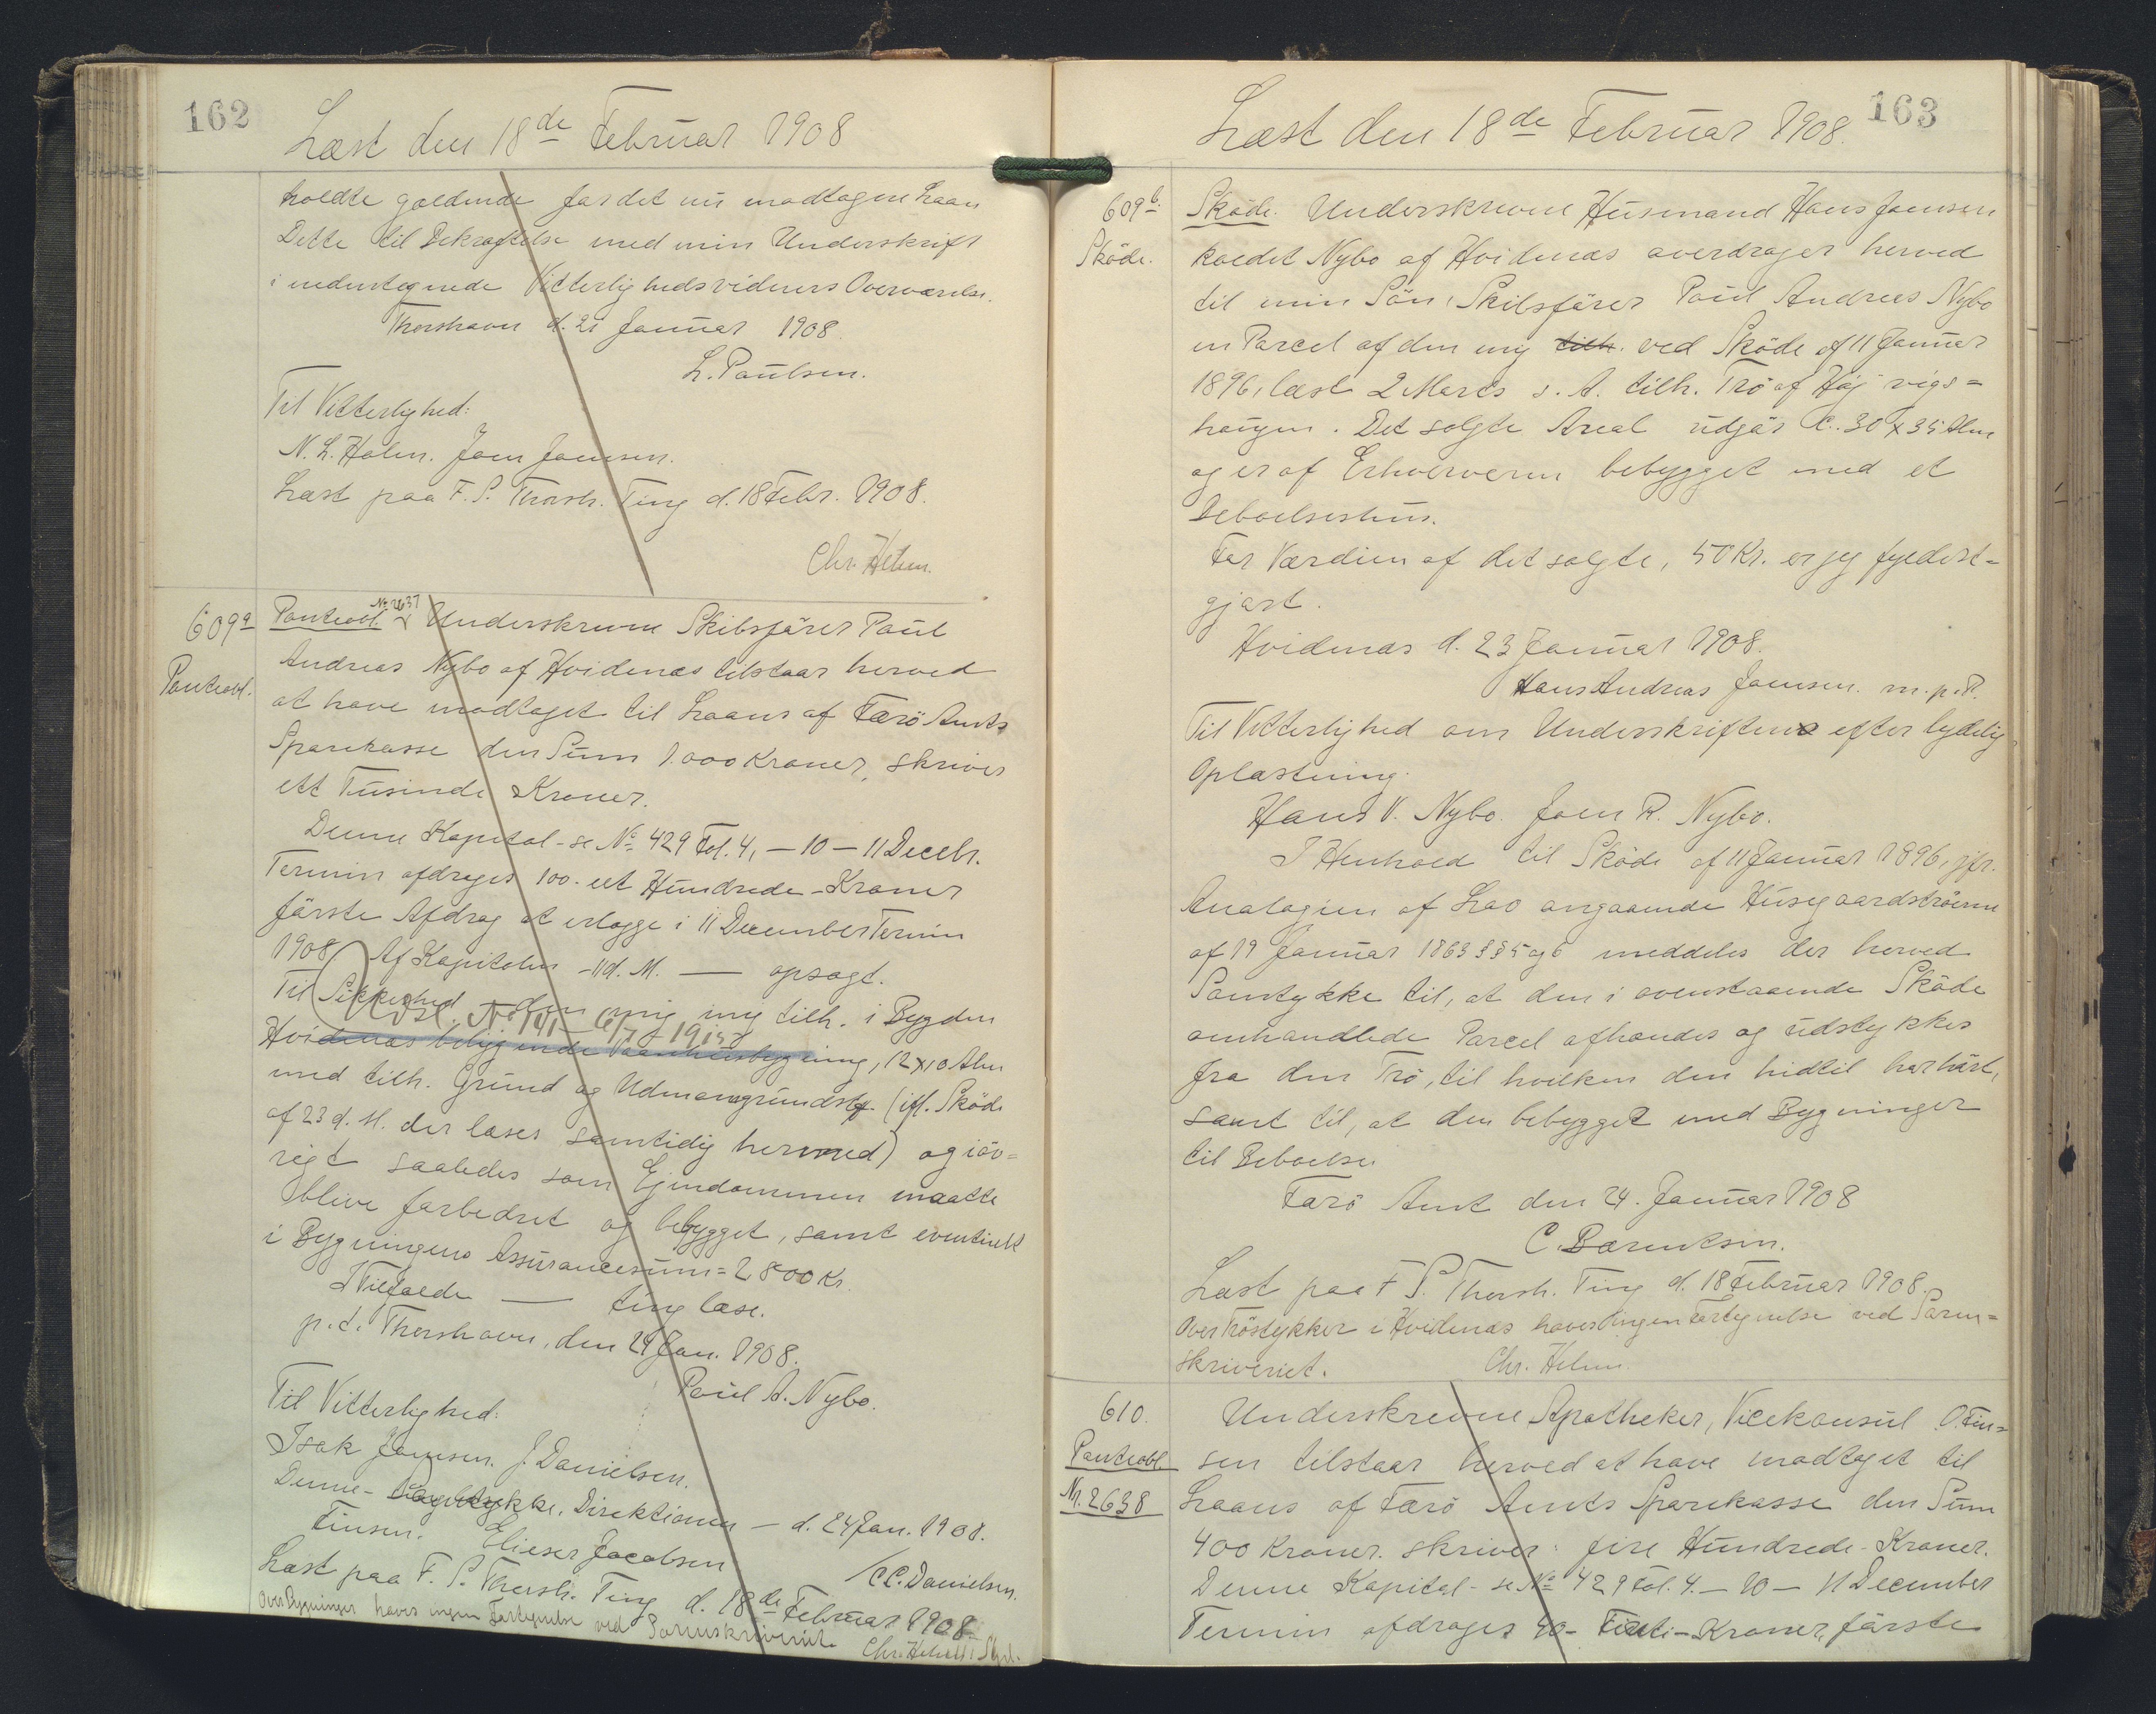 162
Læst den 18de Februar 1908
holdte gældende for det nu modtagne Laan
Dette til Bekræftelse med min Underskrift
i undertegnede Vitterlighedsvidners Overværelse.
Thorshavn d. 21 Januar 1908.
L. Poulsen.
Til Vitterlighed:
N. L. Holm. Joen Joensen.
Læst paa F. S. Thorsh. Ting d. 18 Febr. 1908.
Chr. Holm.
609a
Panteobl.
Panteobl. No 2637 Underskrevne Skibsfører Poul
Andreas Nybo af Hvidenæs tilstaar herved
at have modtaget til Laans af Færö Amts
Sparekasse den Sum 1.000 Kroner, skriver
ett Tusinde Kroner.
Denne Kapital - se No 429 Fol. 4, - 10 - 11 Decebr.
Termin afdrages 100. ett Hundrede - Kroner
første Afdrag at erlægge i 11 December Termin
1908. Af Kapitalen - 11 d. M. — opsagt.
Til Sikkerhed mig tilh. i Bygden
Udsl. No 141 - 6/7 - 1915
Hvidenæs Vaanhusbygning, 12 x 10 Alen
med tilh. Grund og Udmarsgrundst. (ifl. Skøde
af 23 d. M. der læses samtidig hermed) og iöv=
rigt saaledes som Ejendommen maatte
blive forbedret og bebygget, samt eventuelt
i Bygningens Assurancesum = 2800 Kr.
I Tilfælde — ting læse.
p. t. Thorshavn, den 24 Jan. 1908.
Poul A. Nybo.
Til Vitterlighed:
Isak Joensen. J. Danielsen.
Denne - Direktionen - d. 24 Jan. 1908.
Finsen. Elieser Jacobsen / C. C. Danielsen.
Læst paa F. S. Thorsh. Ting d. 18de Februar 1908
Over Bygninger haves ingen Fortegnelse ved Sorenskriveriet.
Chr. Holm
163
Læst den 18de Februar 1908.
609b.
Sköde.
Sköde. Underskrevne Husmand Hans Joensen
kaldet Nybo af Hvidenæs overdrager herved
til min Sön, Skibsfører Poul Andreas Nybo
en Parcel af den mig tilh. ved Sköde af 11 Januar
1896, læst 2 Marts s. A. tilh. Trö af Höjvigs=
haugen. Det solgte Areal udgör c. 30 x 35 Alen
og er af Erhververen bebygget med et
Beboelseshus.
For Værdien af det solgte, 50 Kr. er jeg fyldest=
gjort.
Hvidenæs d. 23 Januar 1908.
Hans Andreas Joensen. m. p. P.
Til Vitterlighed om Underskriften efter lydelig
Oplæsning.
Hans V. Nybo. Joen R. Nybo.
I Henhold til Sköde af 11 Januar 1896, jfr.
Analogien af Lov angaaende Husegaardströerne
af 19 Januar 1863 §§ 5 og 6 meddeles der herved
Samtykke til, at den i ovenstaaende Sköde
omhandlede Parcel afhændes og udstykkes
fra den Trö, til hvilken den hidtil har hört,
samt til, at den bebygget med Bygninger
til Beboelse.
Færö Amt den 24. Januar 1908
C. Bærentsen.
Læst paa F. S. Thorsh. Ting d. 18 Februar 1908.
Over Tröstykker i Hvidenæs haves ingen Fortegnelse ved Soren=
skriveriet. Chr. Holm.
610.
Panteobl.
Nr. 2638
Underskrevne Apotheker, Vicekonsul O. Fin=
sen tilstaar herved at have modtaget til
Laans af Færö Amts Sparekasse den Sum
400 Kroner. skriver: fire Hundrede - Kroner.
Denne Kapital - se No 429 Fol. 4. - 10 - 11 December
Termin afdrages 40 - Firti - Kroner, förste